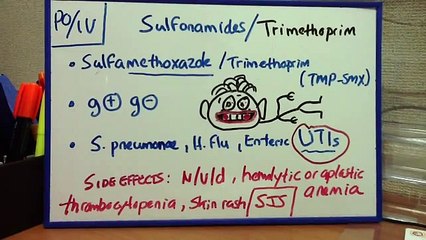 PO/IV
Sulfonamides/Trimethoprim
• Sulfamethoxazole/Trimethoprim
(TMP-SMX)
• g⊕ g⊖
• S. pneumonae, H. Flu, Enteric UTIs
SIDE EFFECTS: N/V/d, hemolytic or aplastic
anemia
thrombocytopenia, skin rash/SJS